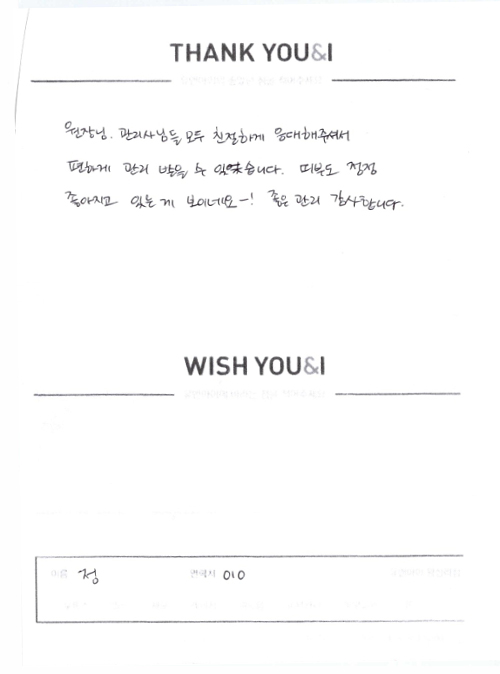 THANK YOU&I
원장님. 관리사님들 모두 친절하게 응대해주셔서
편하게 관리 받을 수 있었습니다. 피부도 점점
좋아지고 있는게 보이네요~! 좋은 관리 감사합니다.
WISH YOU&I
이름 정 연락처 010